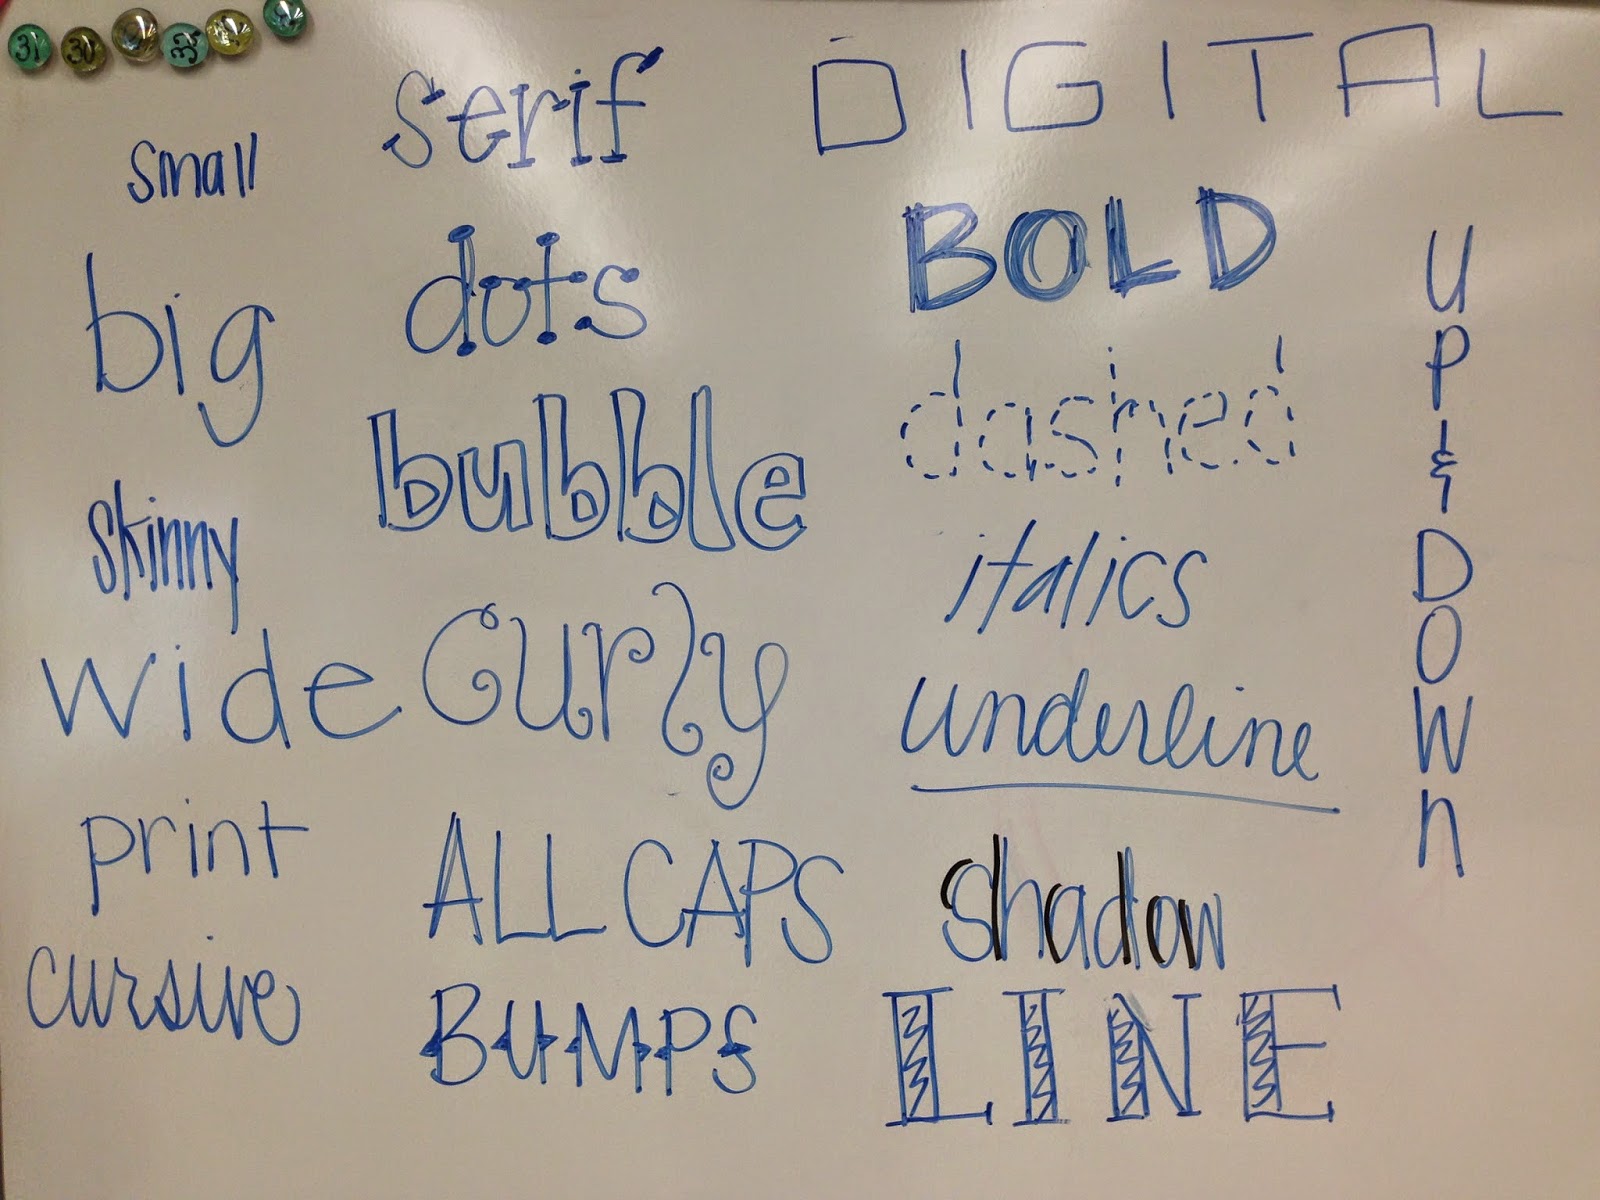 31
30
32
small
big
skinny
wide
print
cursive
serif
dots
bubble
curly
ALL CAPS
BUMPS
DIGITAL
BOLD
dashed
italics
underline
shadow
LINE
UP&DOWn